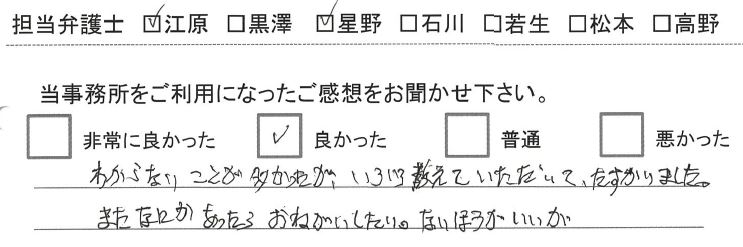 担当弁護士 ☑江原 □黒澤 ☑星野 □石川 □若生 □松本 □高野
当事務所をご利用になったご感想をお聞かせ下さい。
□ 非常に良かった ☑ 良かった □ 普通 □ 悪かった
わからないことが多かったが、いろいろ教えていただいて、たすかりました。
またなにかあったらおねがいしたい。ないほうがいいが